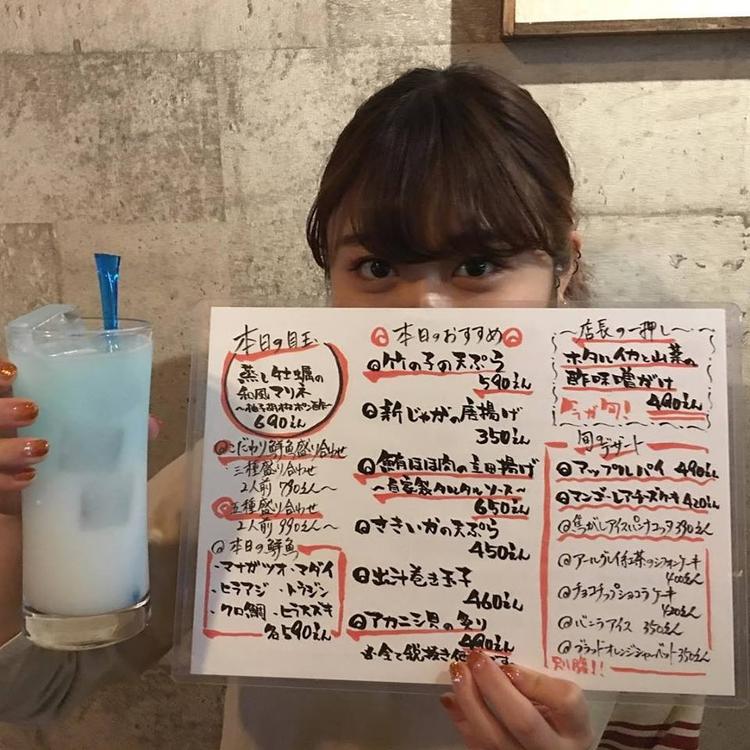 本日の目玉
蒸し牡蠣の
和風マリネ
690えん
こだわり鮮魚盛り合わせ
三種盛り合わせ
2人前 790えん〜
五種盛り合わせ
2人前 990えん〜
本日の鮮魚
・マナガツオ・マダイ
・ヒラアジ ・トラジン
・クロ鯛 ・ヒラスズキ
各590えん
本日のおすすめ
竹の子の天ぷら
590えん
新じゃがの唐揚げ
350えん
鮪ほほ肉の竜田揚げ
〜自家製タルタルソース〜
650えん
さきいかの天ぷら
450えん
出汁巻き玉子
460えん
アカニシ貝の炙り
490えん
全て税抜き
です
〜店長の一押し〜
ホタルイカと山菜の
酢味噌がけ
今が旬!
490えん
旬のデザート
アップルパイ 490えん
マンゴーレアチーズケーキ 420えん
焦がしアイスパンナコッタ 390えん
アールグレイ紅茶のシフォンケーキ
400えん
チョコチップショコラケーキ
420えん
バニラアイス 350えん
ブラッドオレンジシャーベット 350えん
別腹!!